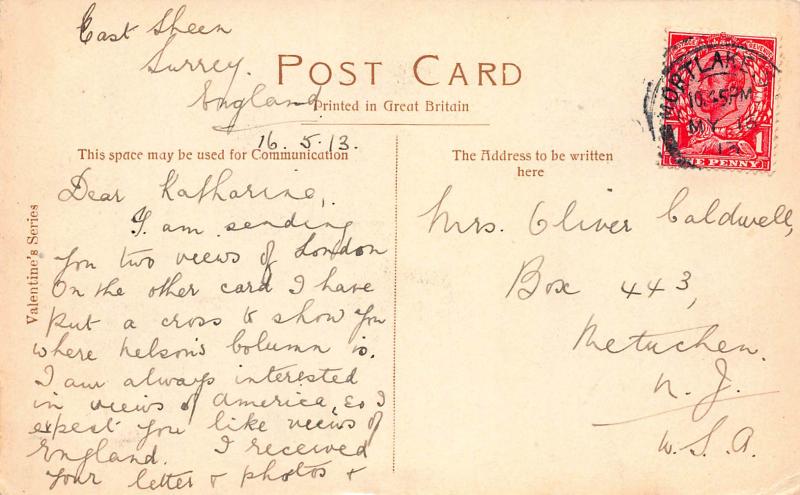 East Sheen
Surrey.
England
POST CARD
Printed in Great Britain
16.5.13.
This space may be used for Communication
The Address to be written
here
Valentine's Series
Dear Katharine,
I am sending
you two views of London
On the other card I have
put a cross to show you
where Nelson's Column is.
I am always interested
in views of America, so I
expect you like views of
England. I received
your letter + photos +
Mrs. Oliver Caldwell,
Box 443,
Metuchen.
N. J.
U.S.A.
MORTLAKE
10.45PM
MY 16
13
POSTAGE
REVENUE
ONE PENNY
1